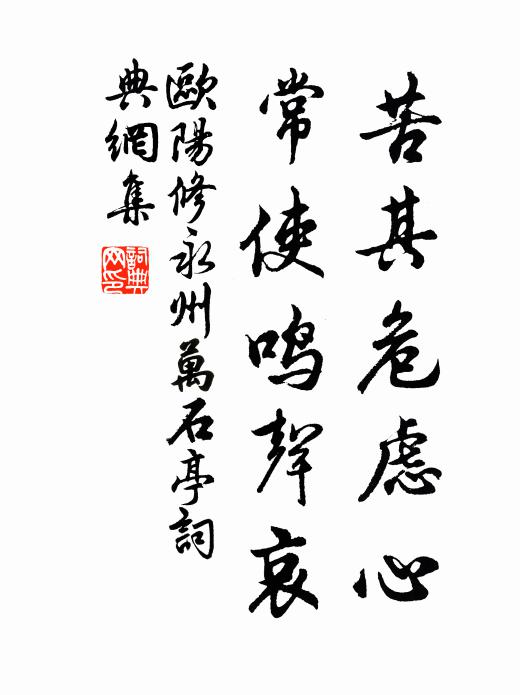 苦其危慮心
常使鳴聲哀
歐陽修永州萬石亭詞
典網集
詞典
网印